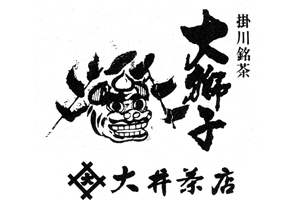 掛川銘茶
大獅子
大
大井茶店